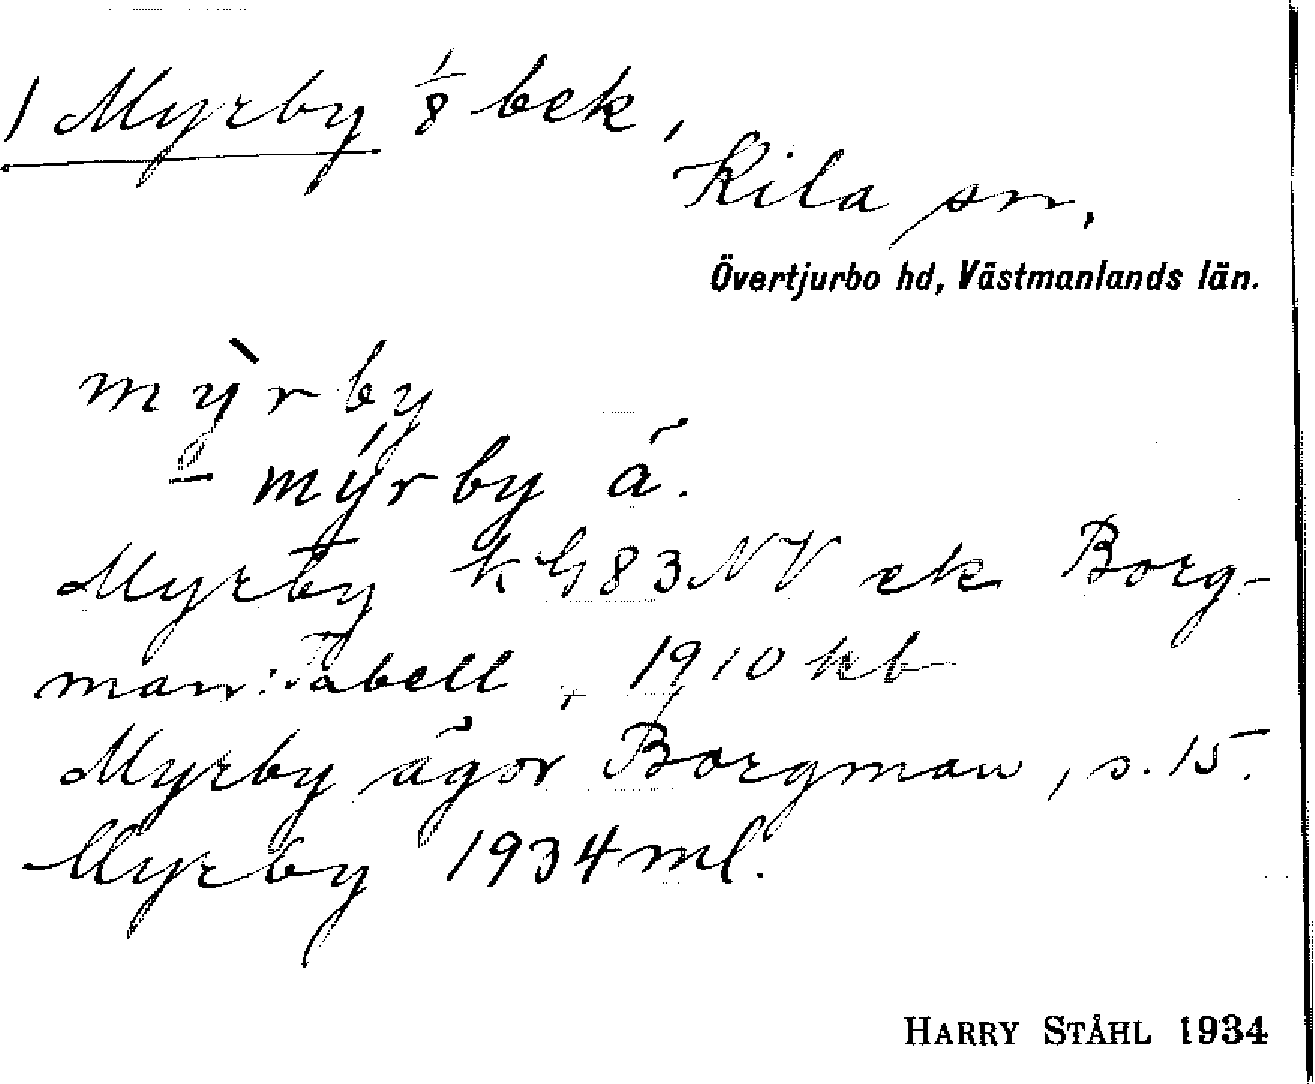 1 Myrby 1/8 bek,
Kila sn.
Övertjurbo hd, Västmanlands län.
mỳrby
– mýrby ä.
Myrby kG83NV ek Borg-
man: Tabell, 1910 kb
Myrby ägor Borgman, s. 15.
Myrby 1934 ml.
HARRY STÅHL 1934